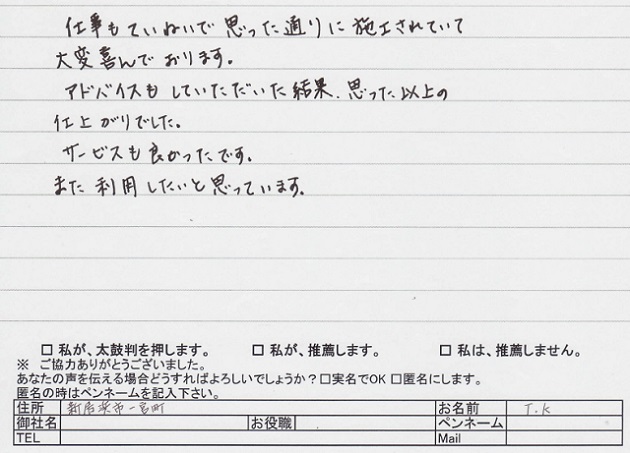 仕事もていねいで思った通りに施工されていて
大変喜んでおります。
アドバイスもしていただいた結果、思った以上の
仕上がりでした。
サービスも良かったです。
また利用したいと思っています。
□ 私が、太鼓判を押します。 □ 私が、推薦します。 □ 私は、推薦しません。
※ ご協力ありがとうございました。
あなたの声を伝える場合どうすればよろしいでしょうか?□実名でOK □匿名にします。
匿名の時はペンネームを記入下さい。
住所 新居浜市一宮町 お名前 T.K
御社名 お役職 ペンネーム
TEL Mail